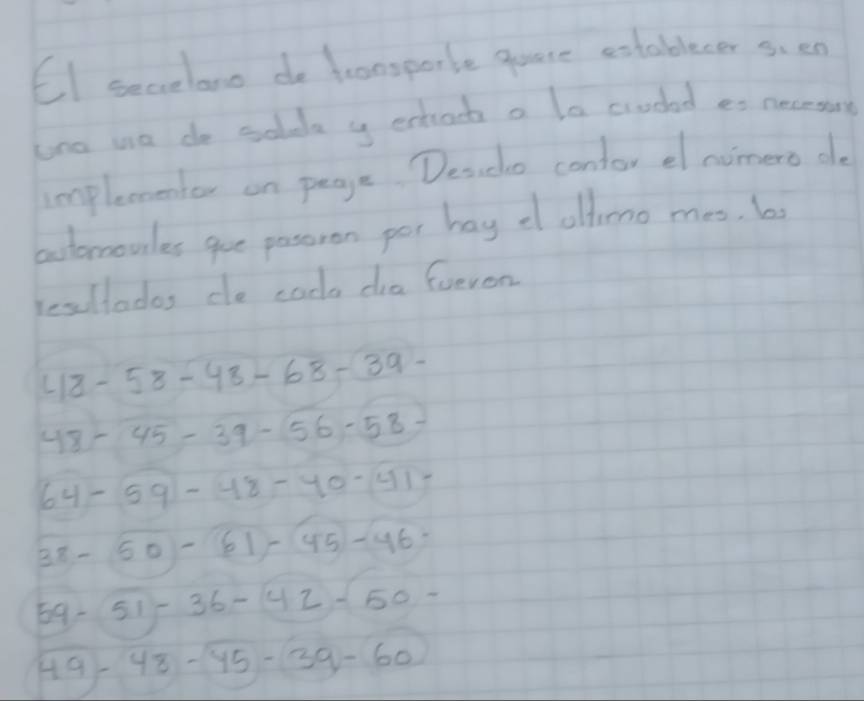 El secretario de transporte quiere establecer si en
una via de salida y entrada a la ciudad es necesario
implementar un peaje. Desidio contar el número de
automoviles que pasaron por hay el ultimo mes. los
resultados de cada dia fueron
48 - 58 - 48 - 68 - 39 -
48 - 45 - 39 - 56 - 58 -
64 - 59 - 48 - 40 - 41 -
38 - 50 - 61 - 45 - 46 -
59 - 51 - 36 - 42 - 50 -
49 - 48 - 45 - 39 - 60